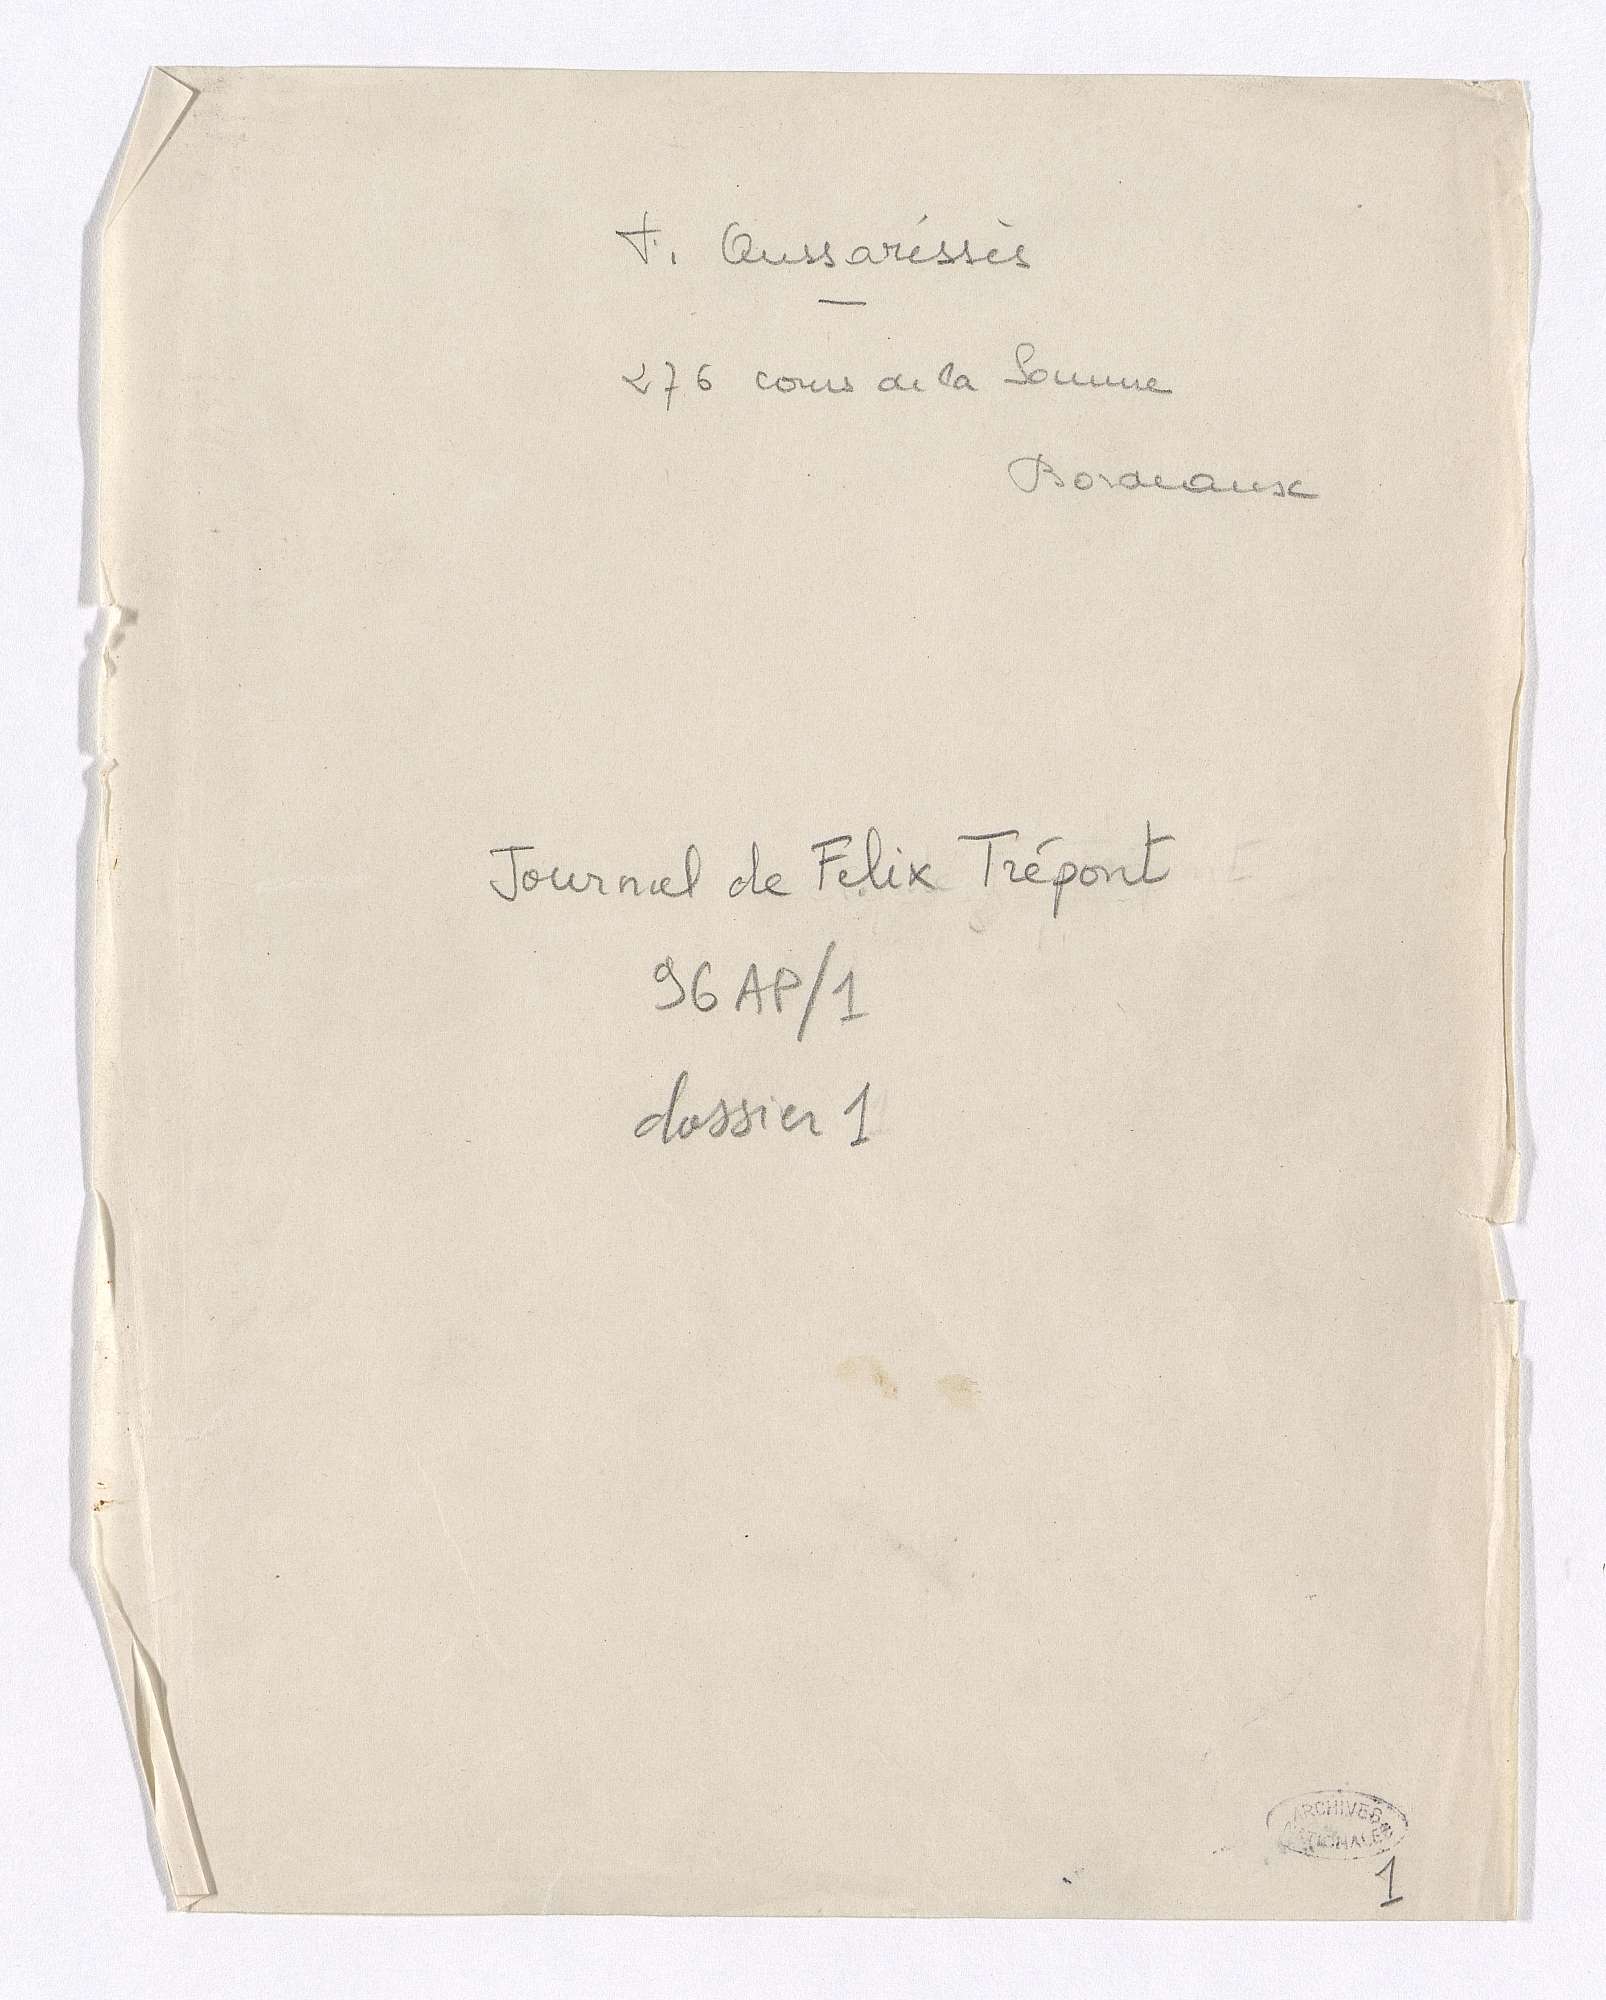 F. Aussaréssès
276 cours de la Somme
Bordeaux
Journal de Felix Trépont
96 AP/1
dossier 1
ARCHIVES
NATIONALES
1